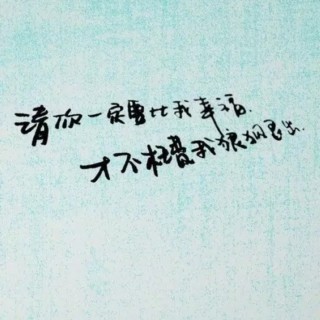 请你一定要比我幸福.
才不枉费我狼狈退出.